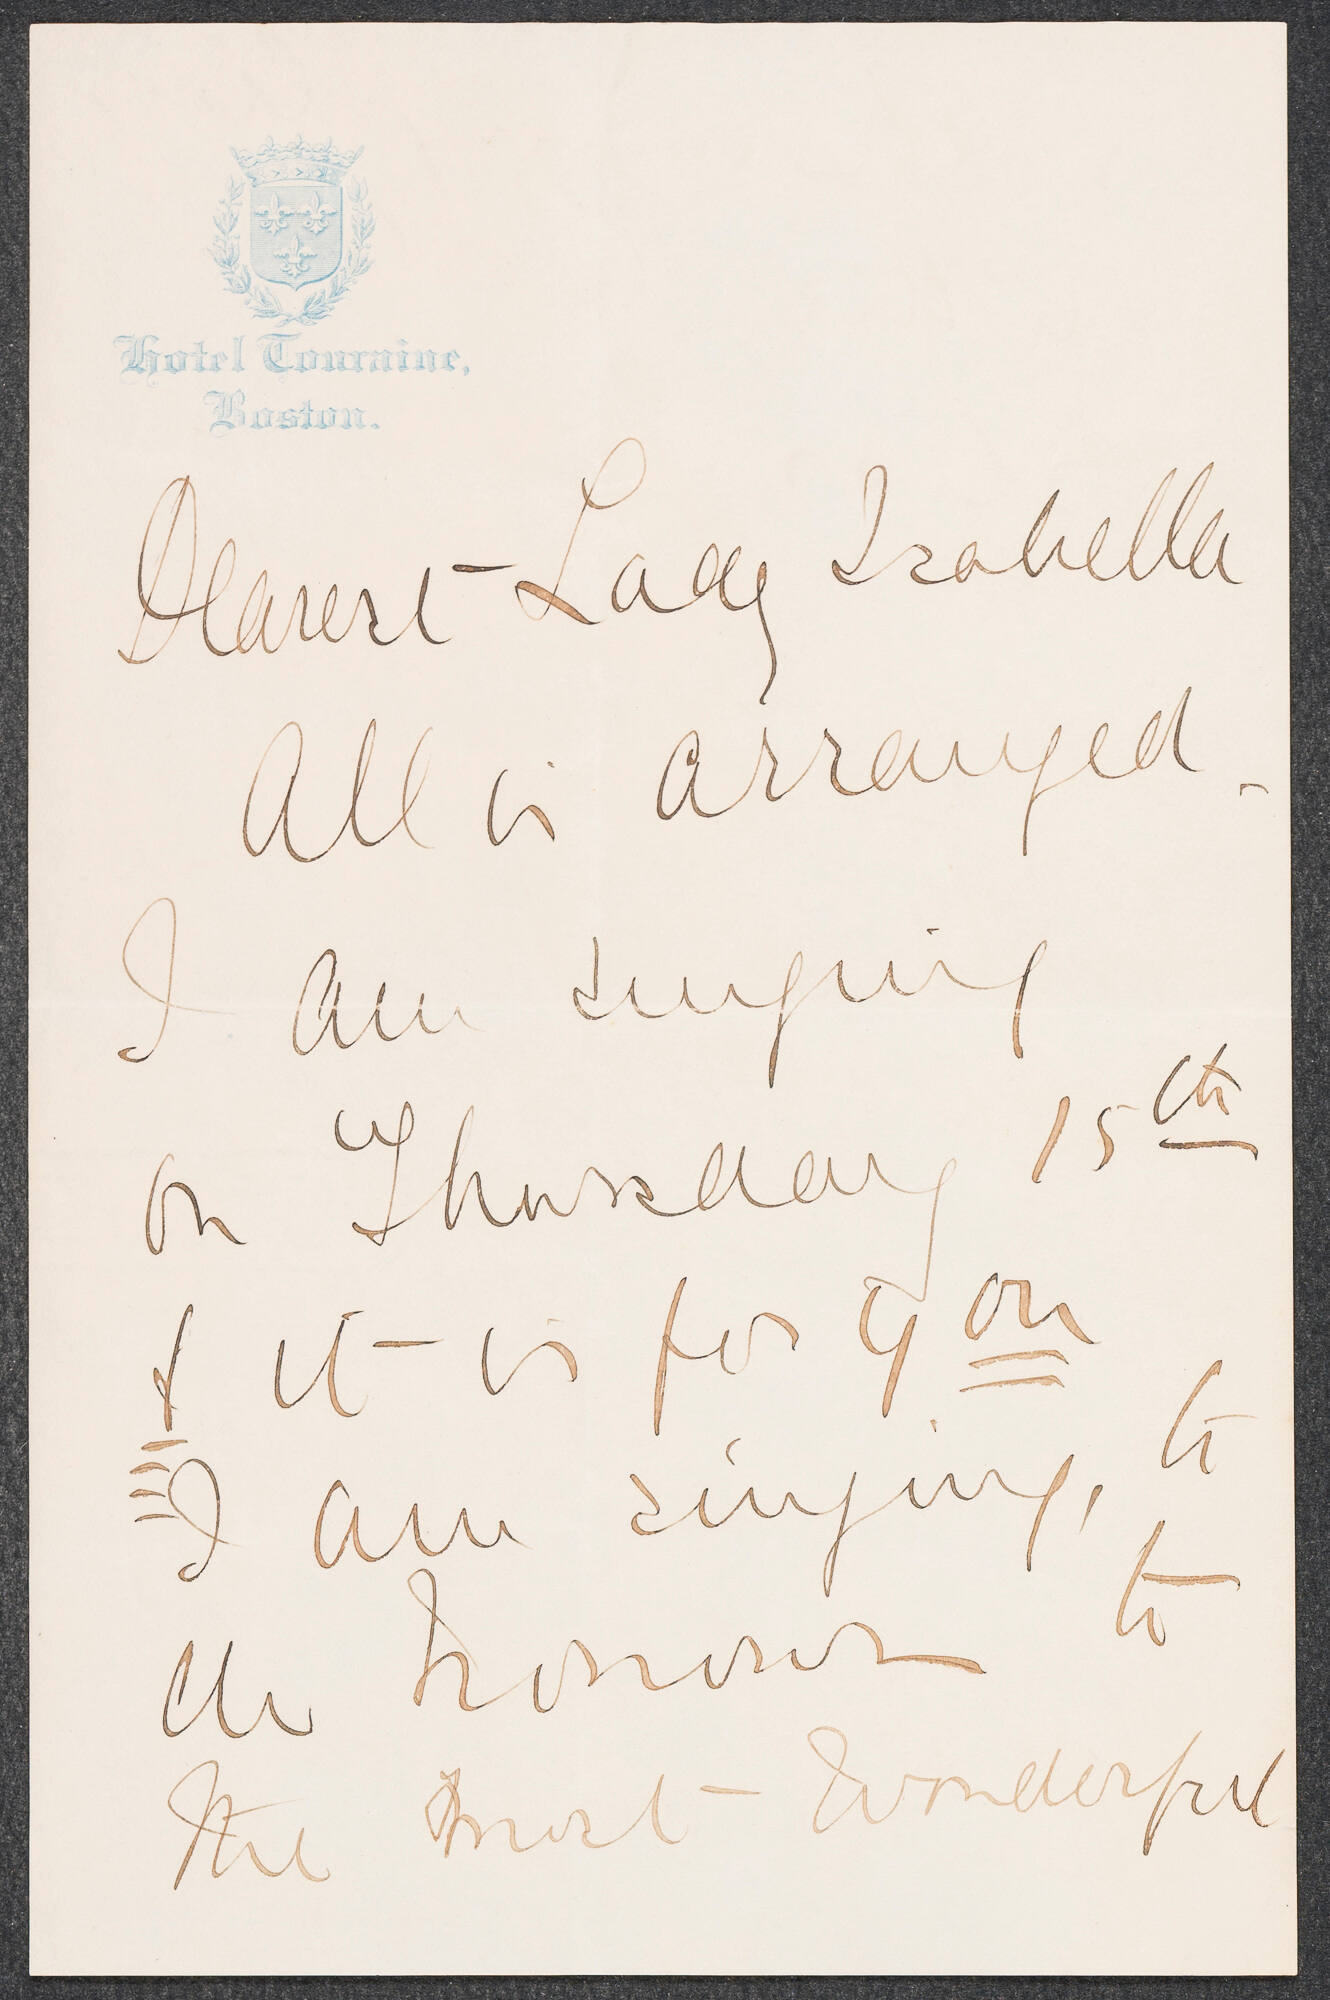 Hotel Touraine,
Boston.
Dearest Lady Isabella
All is arranged.
I am singing
on Thursday 15th
& it is for you
I am singing, to
do honour to
the most wonderful